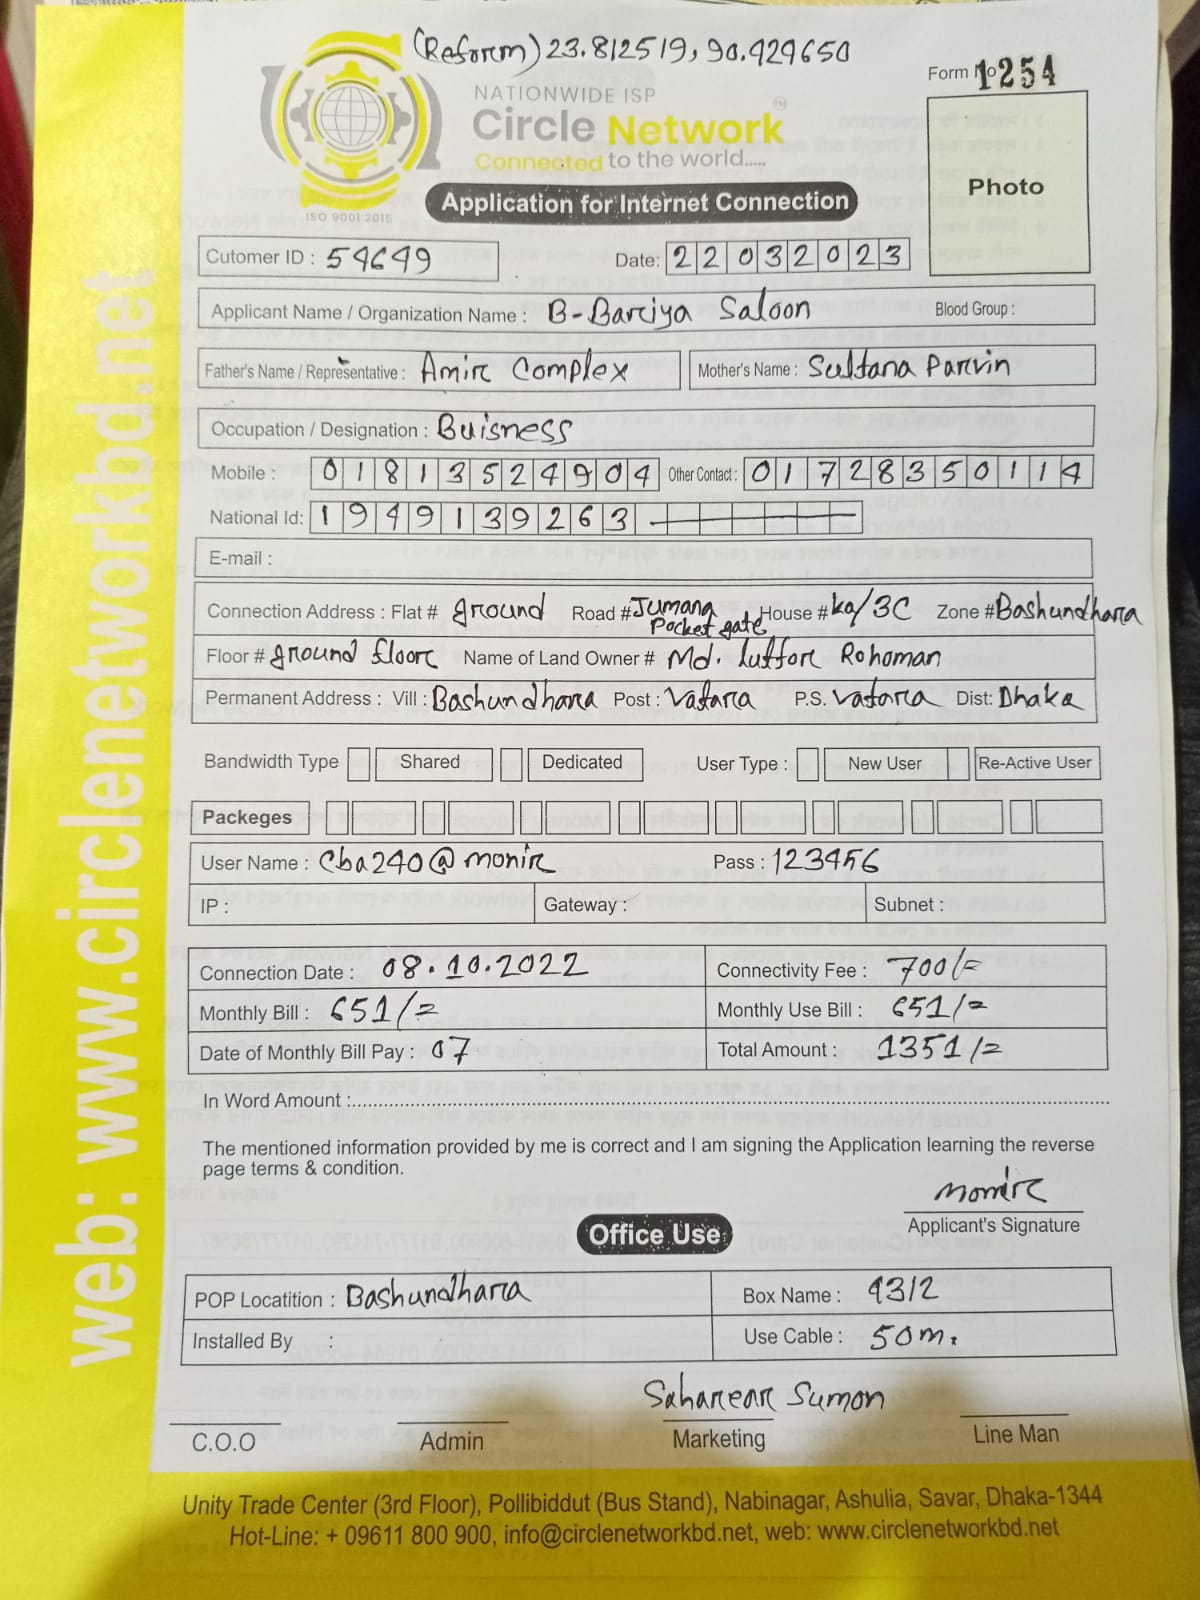 (Reform) 23.812519, 90.429650
Form No 1254
NATIONWIDE ISP
Circle Network TM
Connected to the world.....
ISO 9001:2015
Application for Internet Connection
Photo
Cutomer ID : 54649
Date: 22032023
Applicant Name / Organization Name : B-Bariya Saloon Blood Group :
Father's Name / Representative : Amir Complex Mother's Name : Sultana Parvin
Occupation / Designation : Buisness
Mobile : 01813524904 Other Contact : 01728350114
National Id: 1949139263
E-mail :
Connection Address : Flat # ground Road # Jumana Pocket gate House # ka/3C Zone # Bashundhara
Floor # ground floor Name of Land Owner # Md. luffor Rohoman
Permanent Address : Vill : Bashundhara Post : Vatara P.S. Vatara Dist: Dhaka
Bandwidth Type Shared Dedicated User Type : New User Re-Active User
Packeges
User Name : Cba240@monir Pass : 123456
IP : Gateway : Subnet :
Connection Date : 08.10.2022 Connectivity Fee : 700/=
Monthly Bill : 651/= Monthly Use Bill : 651/=
Date of Monthly Bill Pay : 07 Total Amount : 1351/=
In Word Amount :
The mentioned information provided by me is correct and I am signing the Application learning the reverse
page terms & condition.
Monir
Applicant's Signature
Office Use
POP Locatition : Bashundhara Box Name : 4312
Installed By : Use Cable : 50m.
Saharear Sumon
C.O.O Admin Marketing Line Man
Unity Trade Center (3rd Floor), Pollibiddut (Bus Stand), Nabinagar, Ashulia, Savar, Dhaka-1344
Hot-Line: + 09611 800 900, info@circlenetworkbd.net, web: www.circlenetworkbd.net
web: www.circlenetworkbd.net